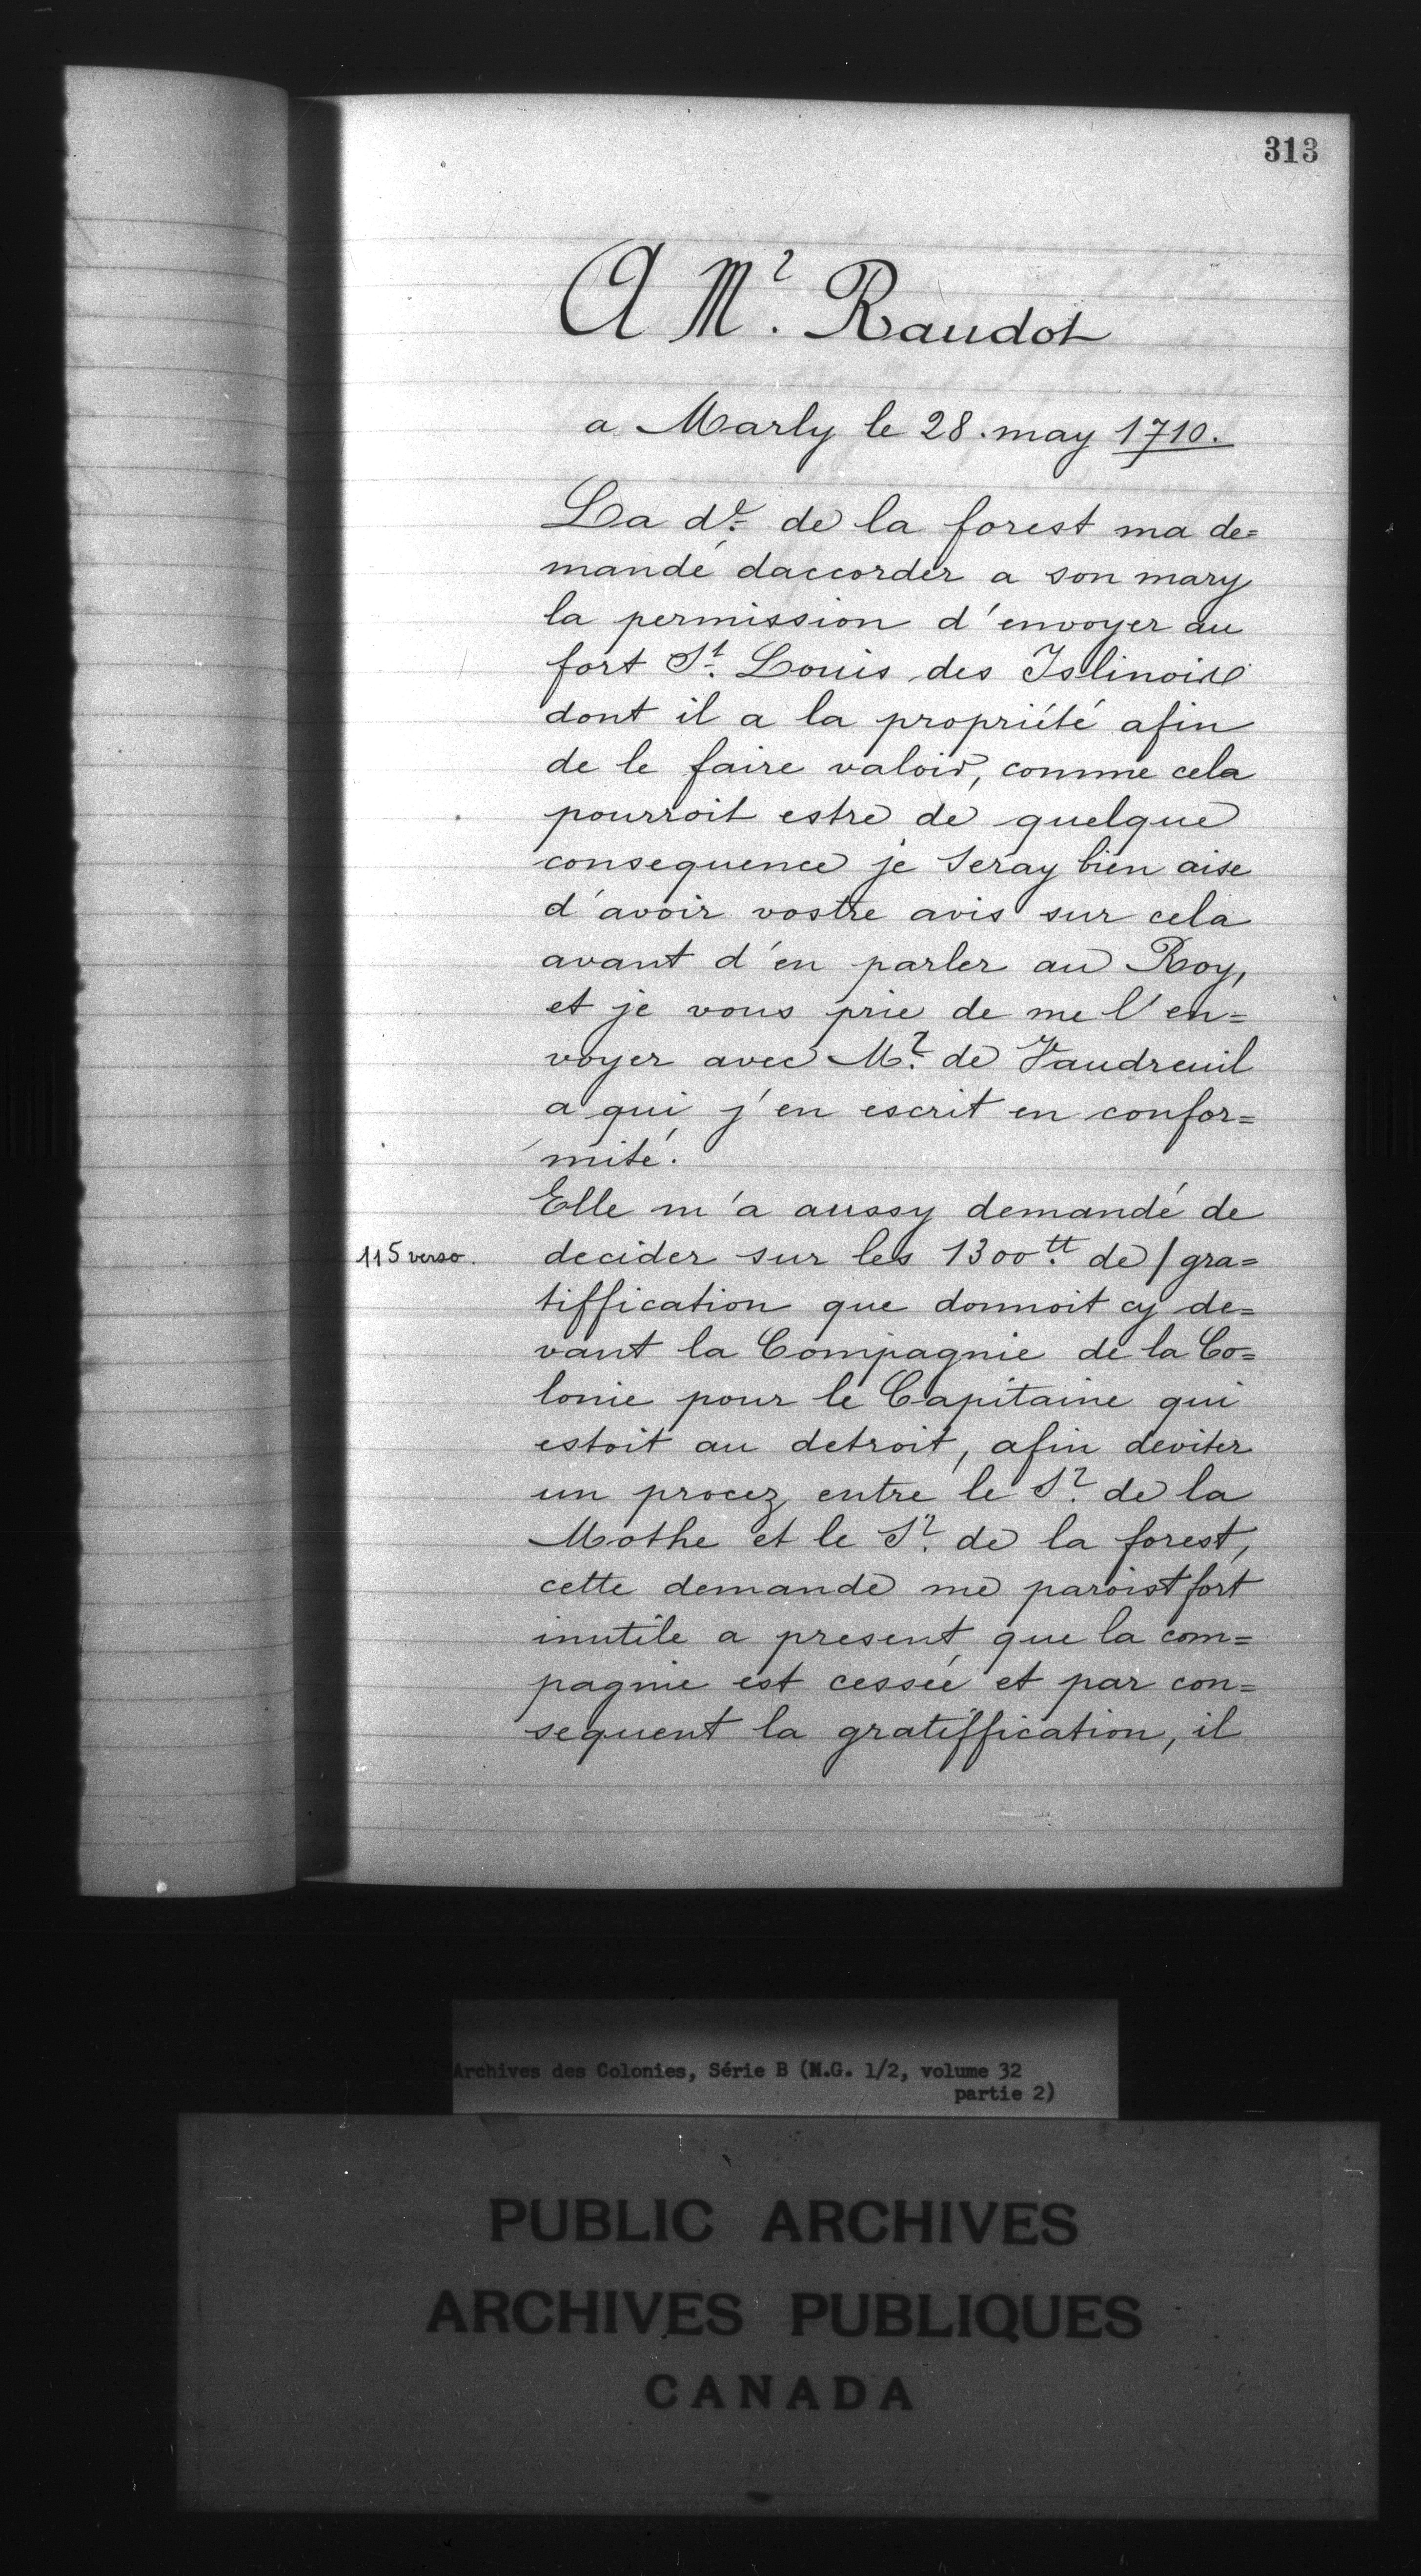 313
A Mr. Raudot
a Marly le 28. may 1710.
La de. de la forest ma de=
mandé daccorder a son mary
la permission d'envoyer au
fort St. Louis des Islinois
dont il a la propriété afin
de le faire valoir, comme cela
pourroit estre de quelque
consequence je seray bien aise
d'avoir vostre avis sur cela
avant d'en parler au Roy,
et je vous prie de me l'en=
voyer avec Mr. de Vaudreuil
a qui j'en escrit en confor=
mité.
Elle m'a aussy demandé de
115 verso. decider sur les 1300tt. de / gra=
tiffication que donnoit cy de=
vant la Compagnie de la Co=
lonie pour le Capitaine qui
estoit au detroit, afin deviter
un procez entre le Sr. de la
Mothe et le Sr. de la forest,
cette demande me paroist fort
inutile a present que la com=
pagnie est cessée et par con=
sequent la gratiffication, il
Archives des Colonies, Série B (M.G. 1/2, volume 32
partie 2)
PUBLIC ARCHIVES
ARCHIVES PUBLIQUES
CANADA